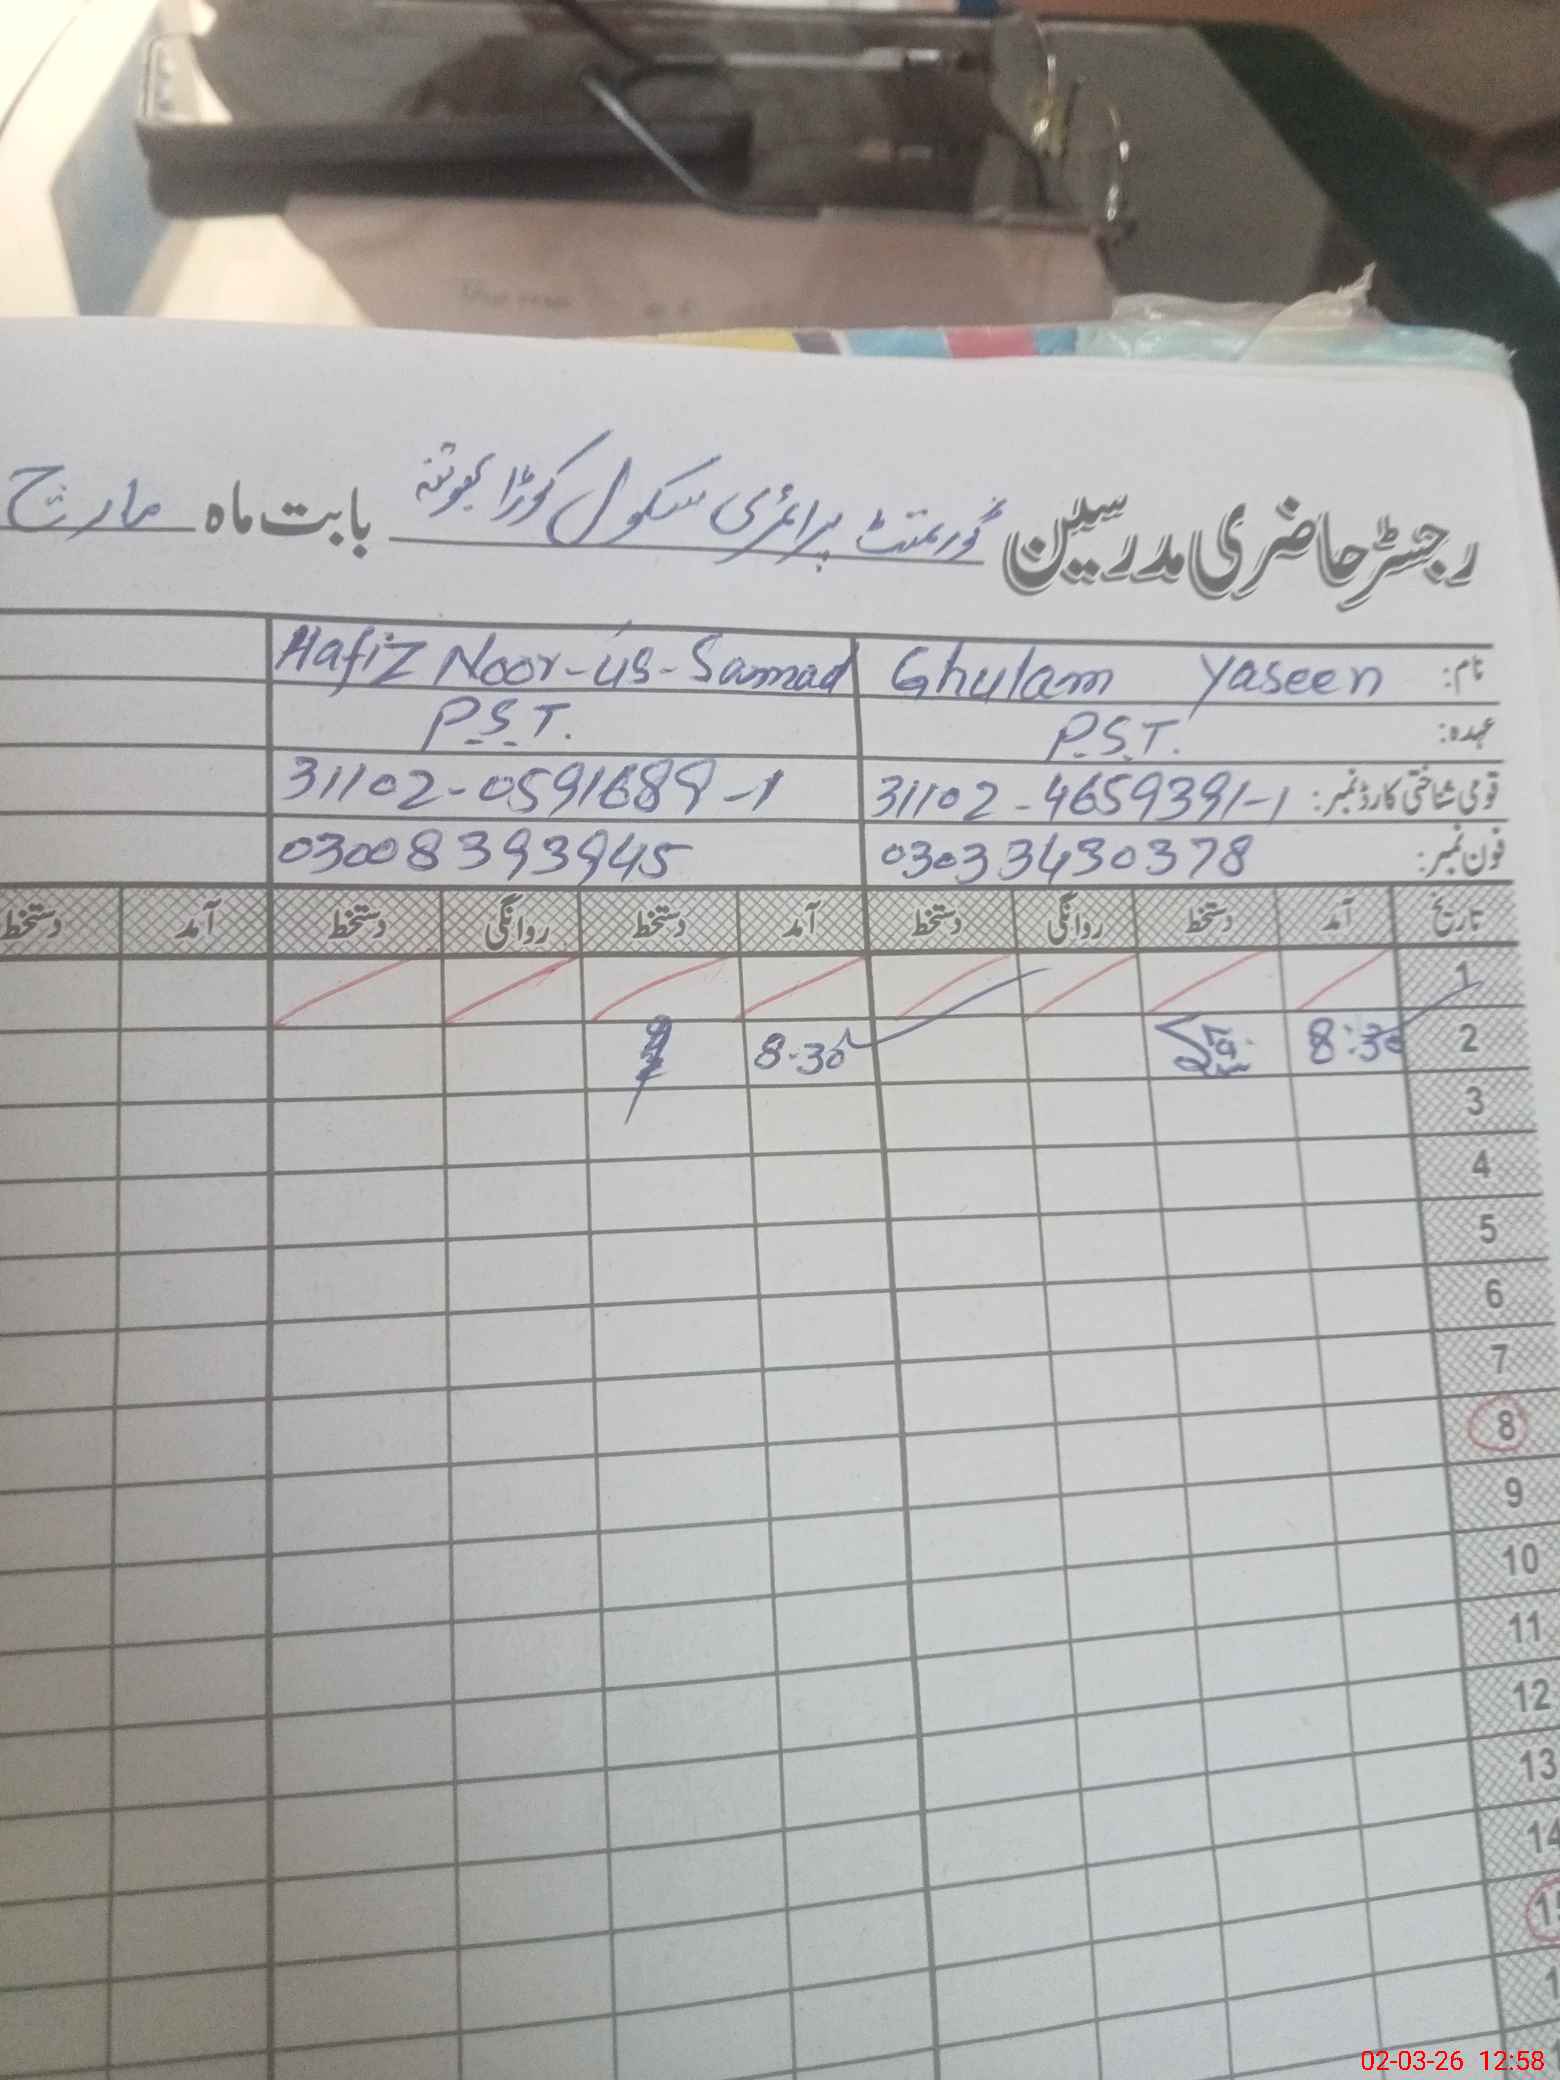 رجسٹر حاضری مدرسین گورنمنٹ پرائمری سکول کوڑا بھوتنہ بابت ماہ مارچ
نام: Ghulam Yaseen Hafiz Noor-us-Samad
عہدہ: P.S.T. P.S.T.
قومی شناختی کارڈ نمبر: 31102-4659391-1 31102-0591689-1
فون نمبر: 03033430378 03008393945
تاریخ آمد دستخط روانگی دستخط آمد دستخط روانگی دستخط آمد دستخط
1
2 8:30 8-30
3
4
5
6
7
8
9
10
11
12
13
14
02-03-26 12:58